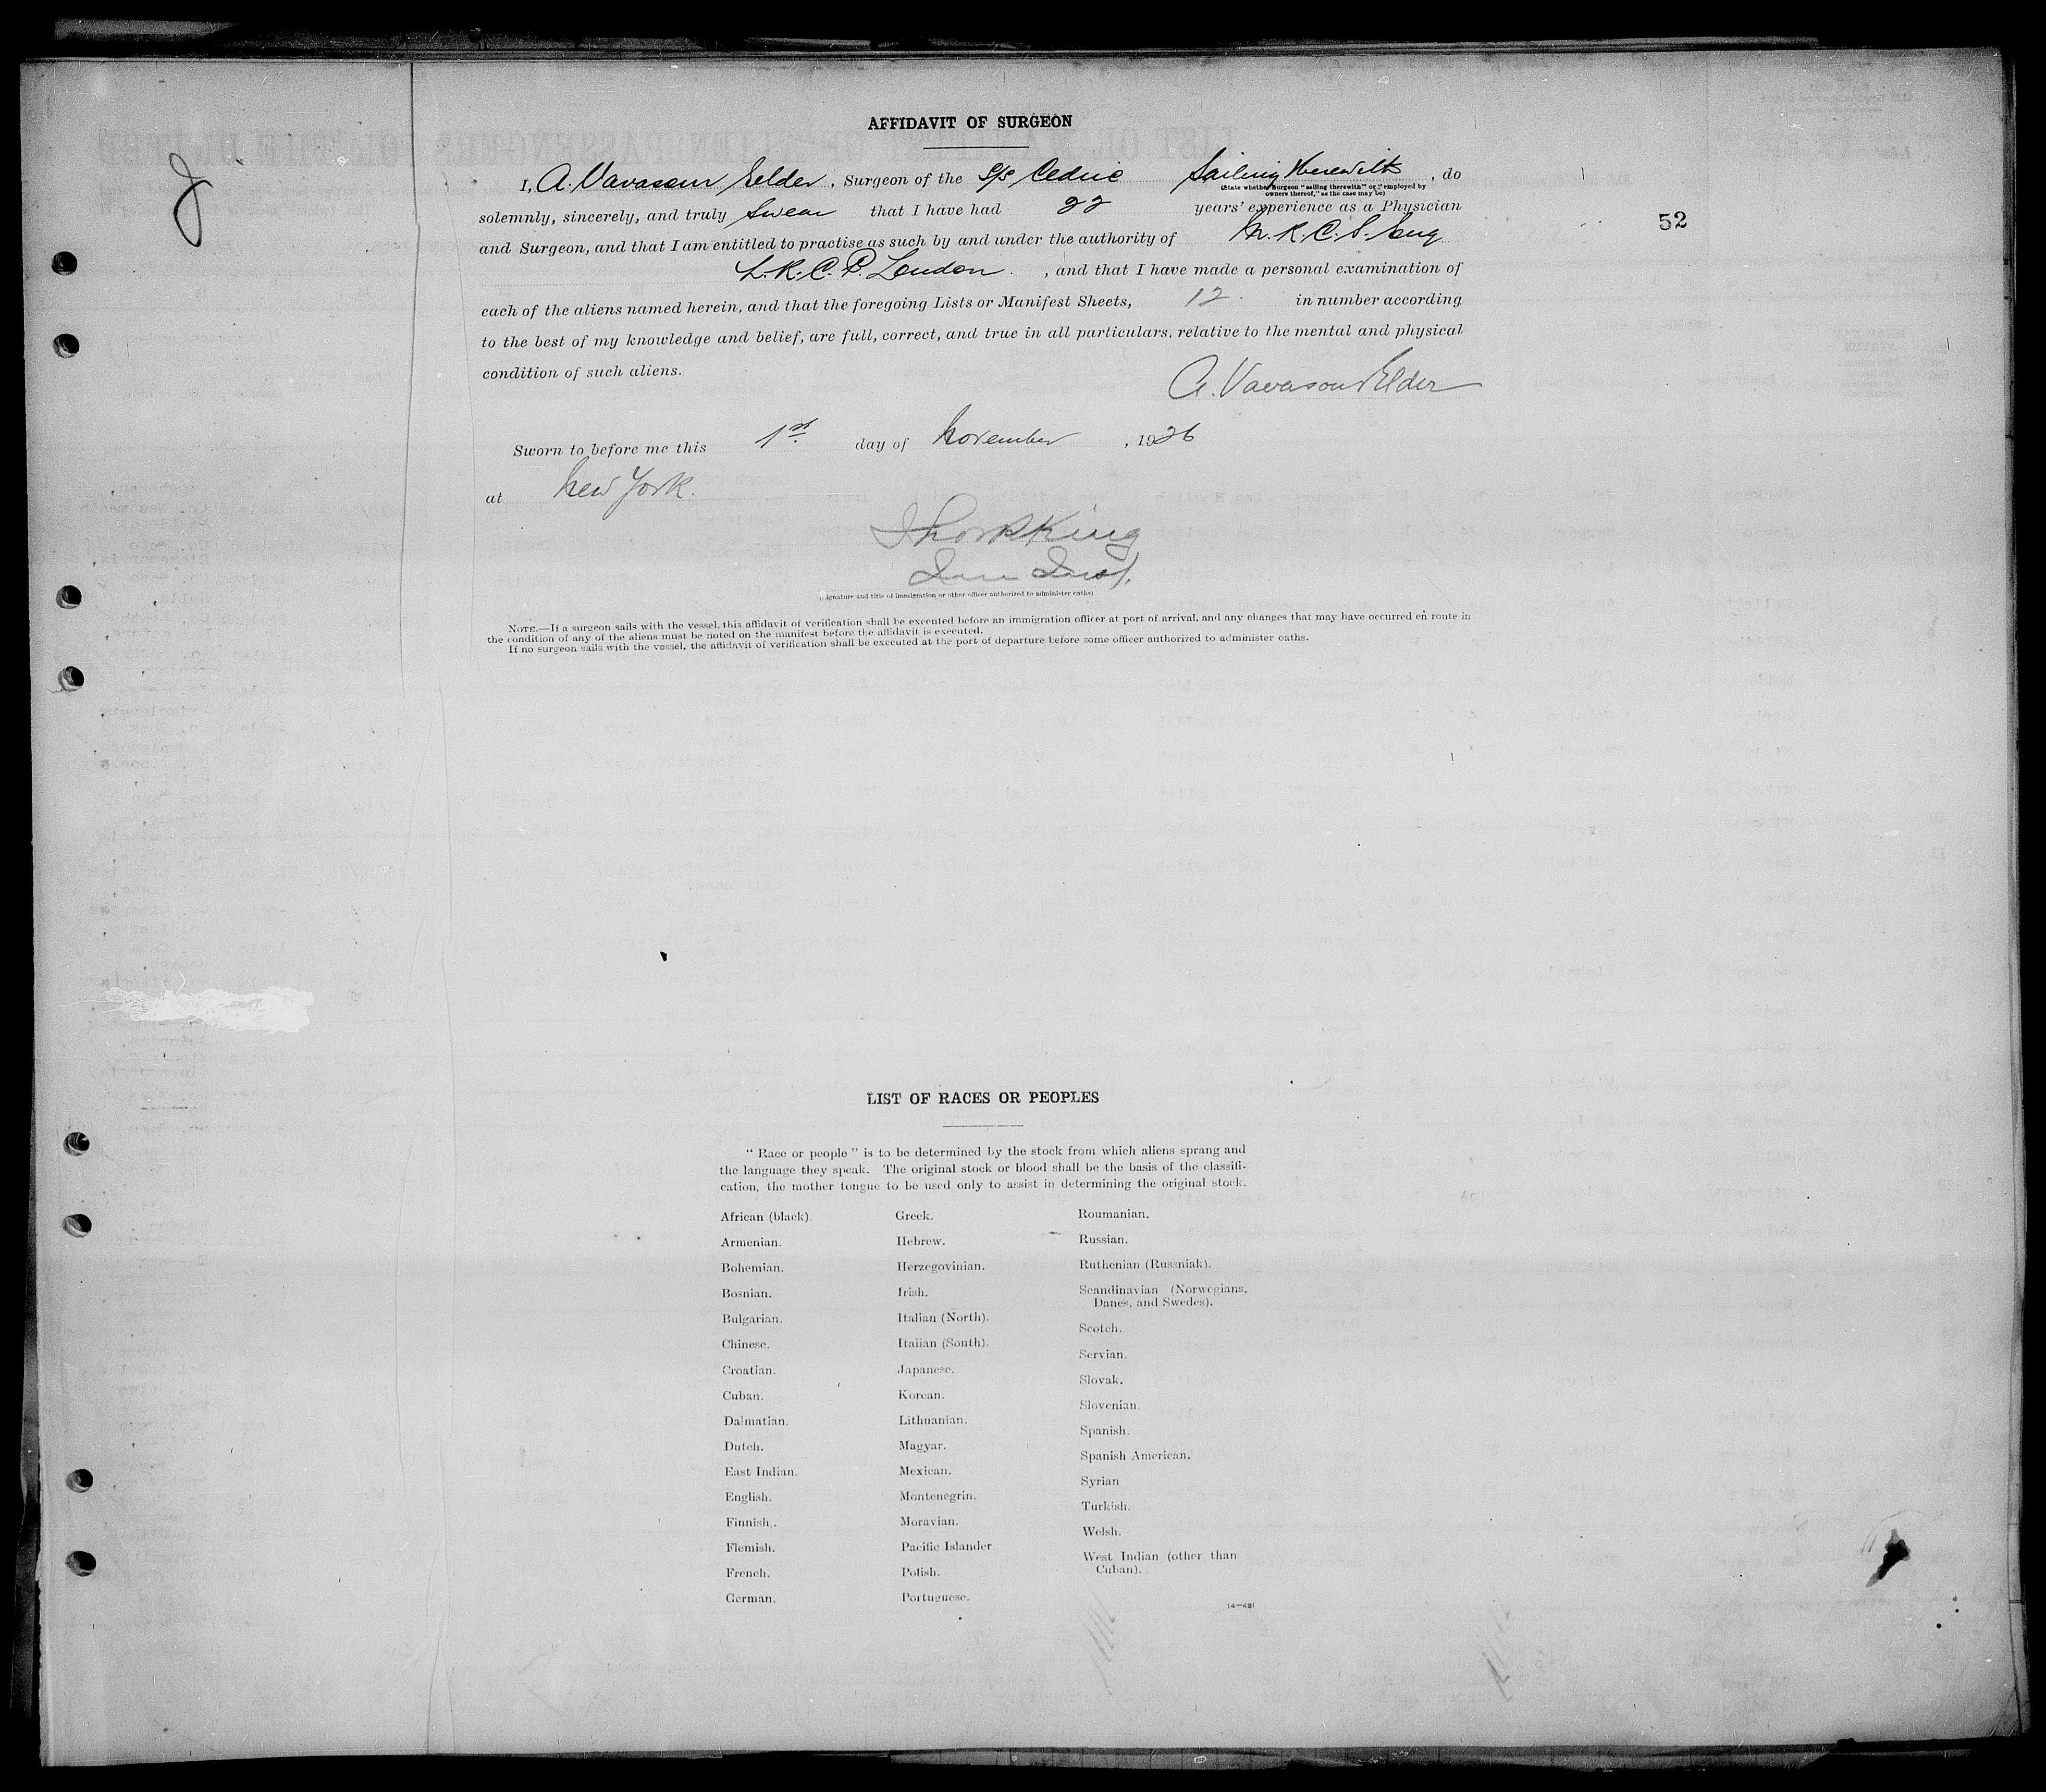 AFFIDAVIT OF SURGEON
J
I, A. Vavasour Elder, Surgeon of the S/S Cedric Sailing therewith, do
(State whether Surgeon "sailing therewith" or "employed by
owners thereof," as the case may be)
solemnly, sincerely, and truly swear that I have had 22 years' experience as a Physician
52
and Surgeon, and that I am entitled to practise as such by and under the authority of M.R.C.S. Eng
L.R.C.P. London. , and that I have made a personal examination of
each of the aliens named herein, and that the foregoing Lists or Manifest Sheets, 12 in number according
to the best of my knowledge and belief, are full, correct, and true in all particulars, relative to the mental and physical
condition of such aliens.
A. Vavasour Elder
Sworn to before me this 1st day of November, 1926
at New York.
King
(Signature and title of immigration or other officer authorized to administer oaths)
NOTE.—If a surgeon sails with the vessel, this affidavit of verification shall be executed before an immigration officer at port of arrival, and any changes that may have occurred en route in
the condition of any of the aliens must be noted on the manifest before the affidavit is executed.
If no surgeon sails with the vessel, the affidavit of verification shall be executed at the port of departure before some officer authorized to administer oaths.
LIST OF RACES OR PEOPLES
"Race or people" is to be determined by the stock from which aliens sprang and
the language they speak. The original stock or blood shall be the basis of the classifi-
cation, the mother tongue to be used only to assist in determining the original stock.
African (black).
Armenian.
Bohemian.
Bosnian.
Bulgarian.
Chinese.
Croatian.
Cuban.
Dalmatian.
Dutch.
East Indian.
English.
Finnish.
Flemish.
French.
German.
Greek.
Hebrew.
Herzegovinian.
Irish.
Italian (North).
Italian (South).
Japanese.
Korean.
Lithuanian.
Magyar.
Mexican.
Montenegrin.
Moravian.
Pacific Islander
Polish.
Portuguese.
Roumanian.
Russian.
Ruthenian (Russniak).
Scandinavian (Norwegians,
Danes, and Swedes).
Scotch.
Servian.
Slovak.
Slovenian.
Spanish.
Spanish American.
Syrian
Turkish.
Welsh.
West Indian (other than
Cuban).
14—421